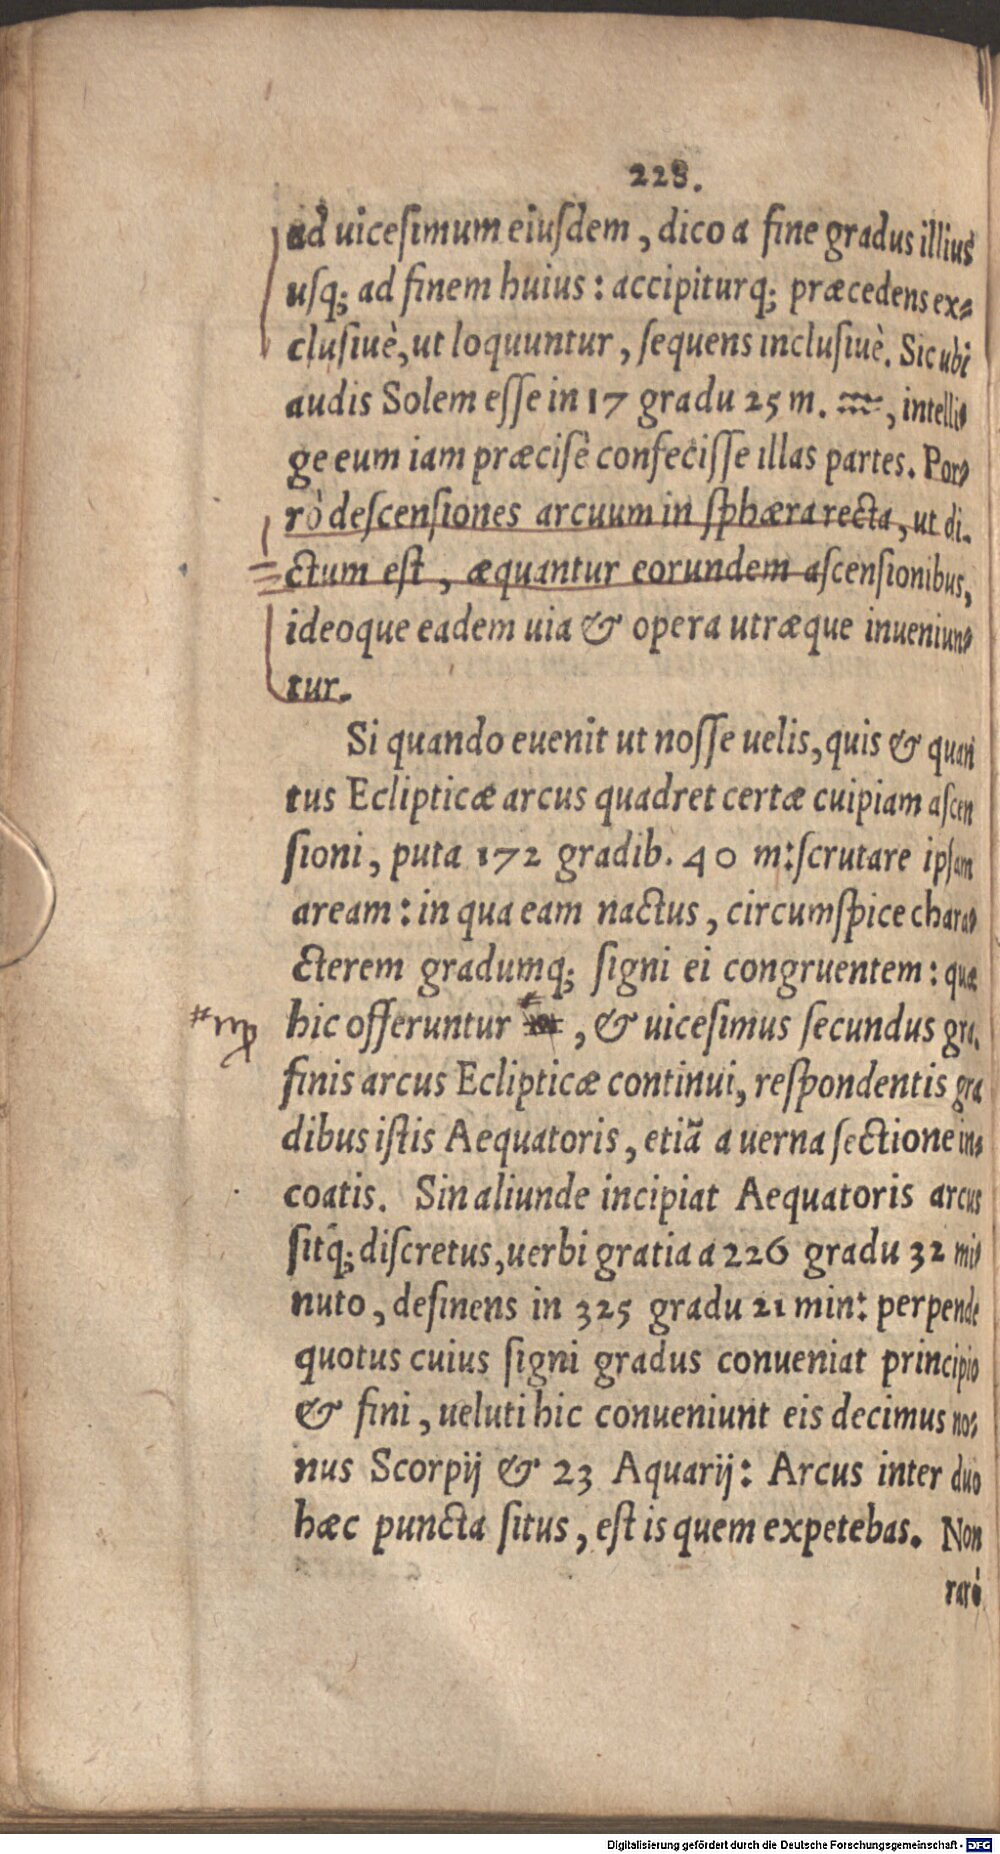 228.
ad uicesimum eiusdem, dico a fine gradus illius
usq; ad finem huius: accipiturq; præcedens ex⸗
clusiuè, ut loquuntur, sequens inclusiuè. Sic ubi
audis Solem esse in 17 gradu 25 m. ♒, intelli⸗
ge eum iam præcisè confecisse illas partes. Por⸗
rò descensiones arcuum in sphæra recta, ut di.
ctum est, æquantur eorundem ascensionibus,
ideoque eadem uia & opera utræque inueniun⸗
tur.
Si quando euenit ut nosse uelis, quis & quan
tus Eclipticæ arcus quadret certæ cuipiam ascen
sioni, puta 172 gradib. 40 m: scrutare ipsam
aream: in qua eam nactus, circumspice chara⸗
cterem gradumq; signi ei congruentem: quæ
# ♍ hic offeruntur #, & uicesimus secundus gra.
finis arcus Eclipticæ continui, respondentis gra
dibus istis Aequatoris, etiã a uerna sectione in⸗
coatis. Sin aliunde incipiat Aequatoris arcus
sitq; discretus, uerbi gratia a 226 gradu 32 mi⸗
nuto, desinens in 325 gradu 21 min: perpende
quotus cuius signi gradus conueniat principio
& fini, ueluti hic conueniunt eis decimus no⸗
nus Scorpij & 23 Aquarij: Arcus inter duo
hæc puncta situs, est is quem expetebas. Non
rarò
Digitalisierung gefördert durch die Deutsche Forschungsgemeinschaft - DFG